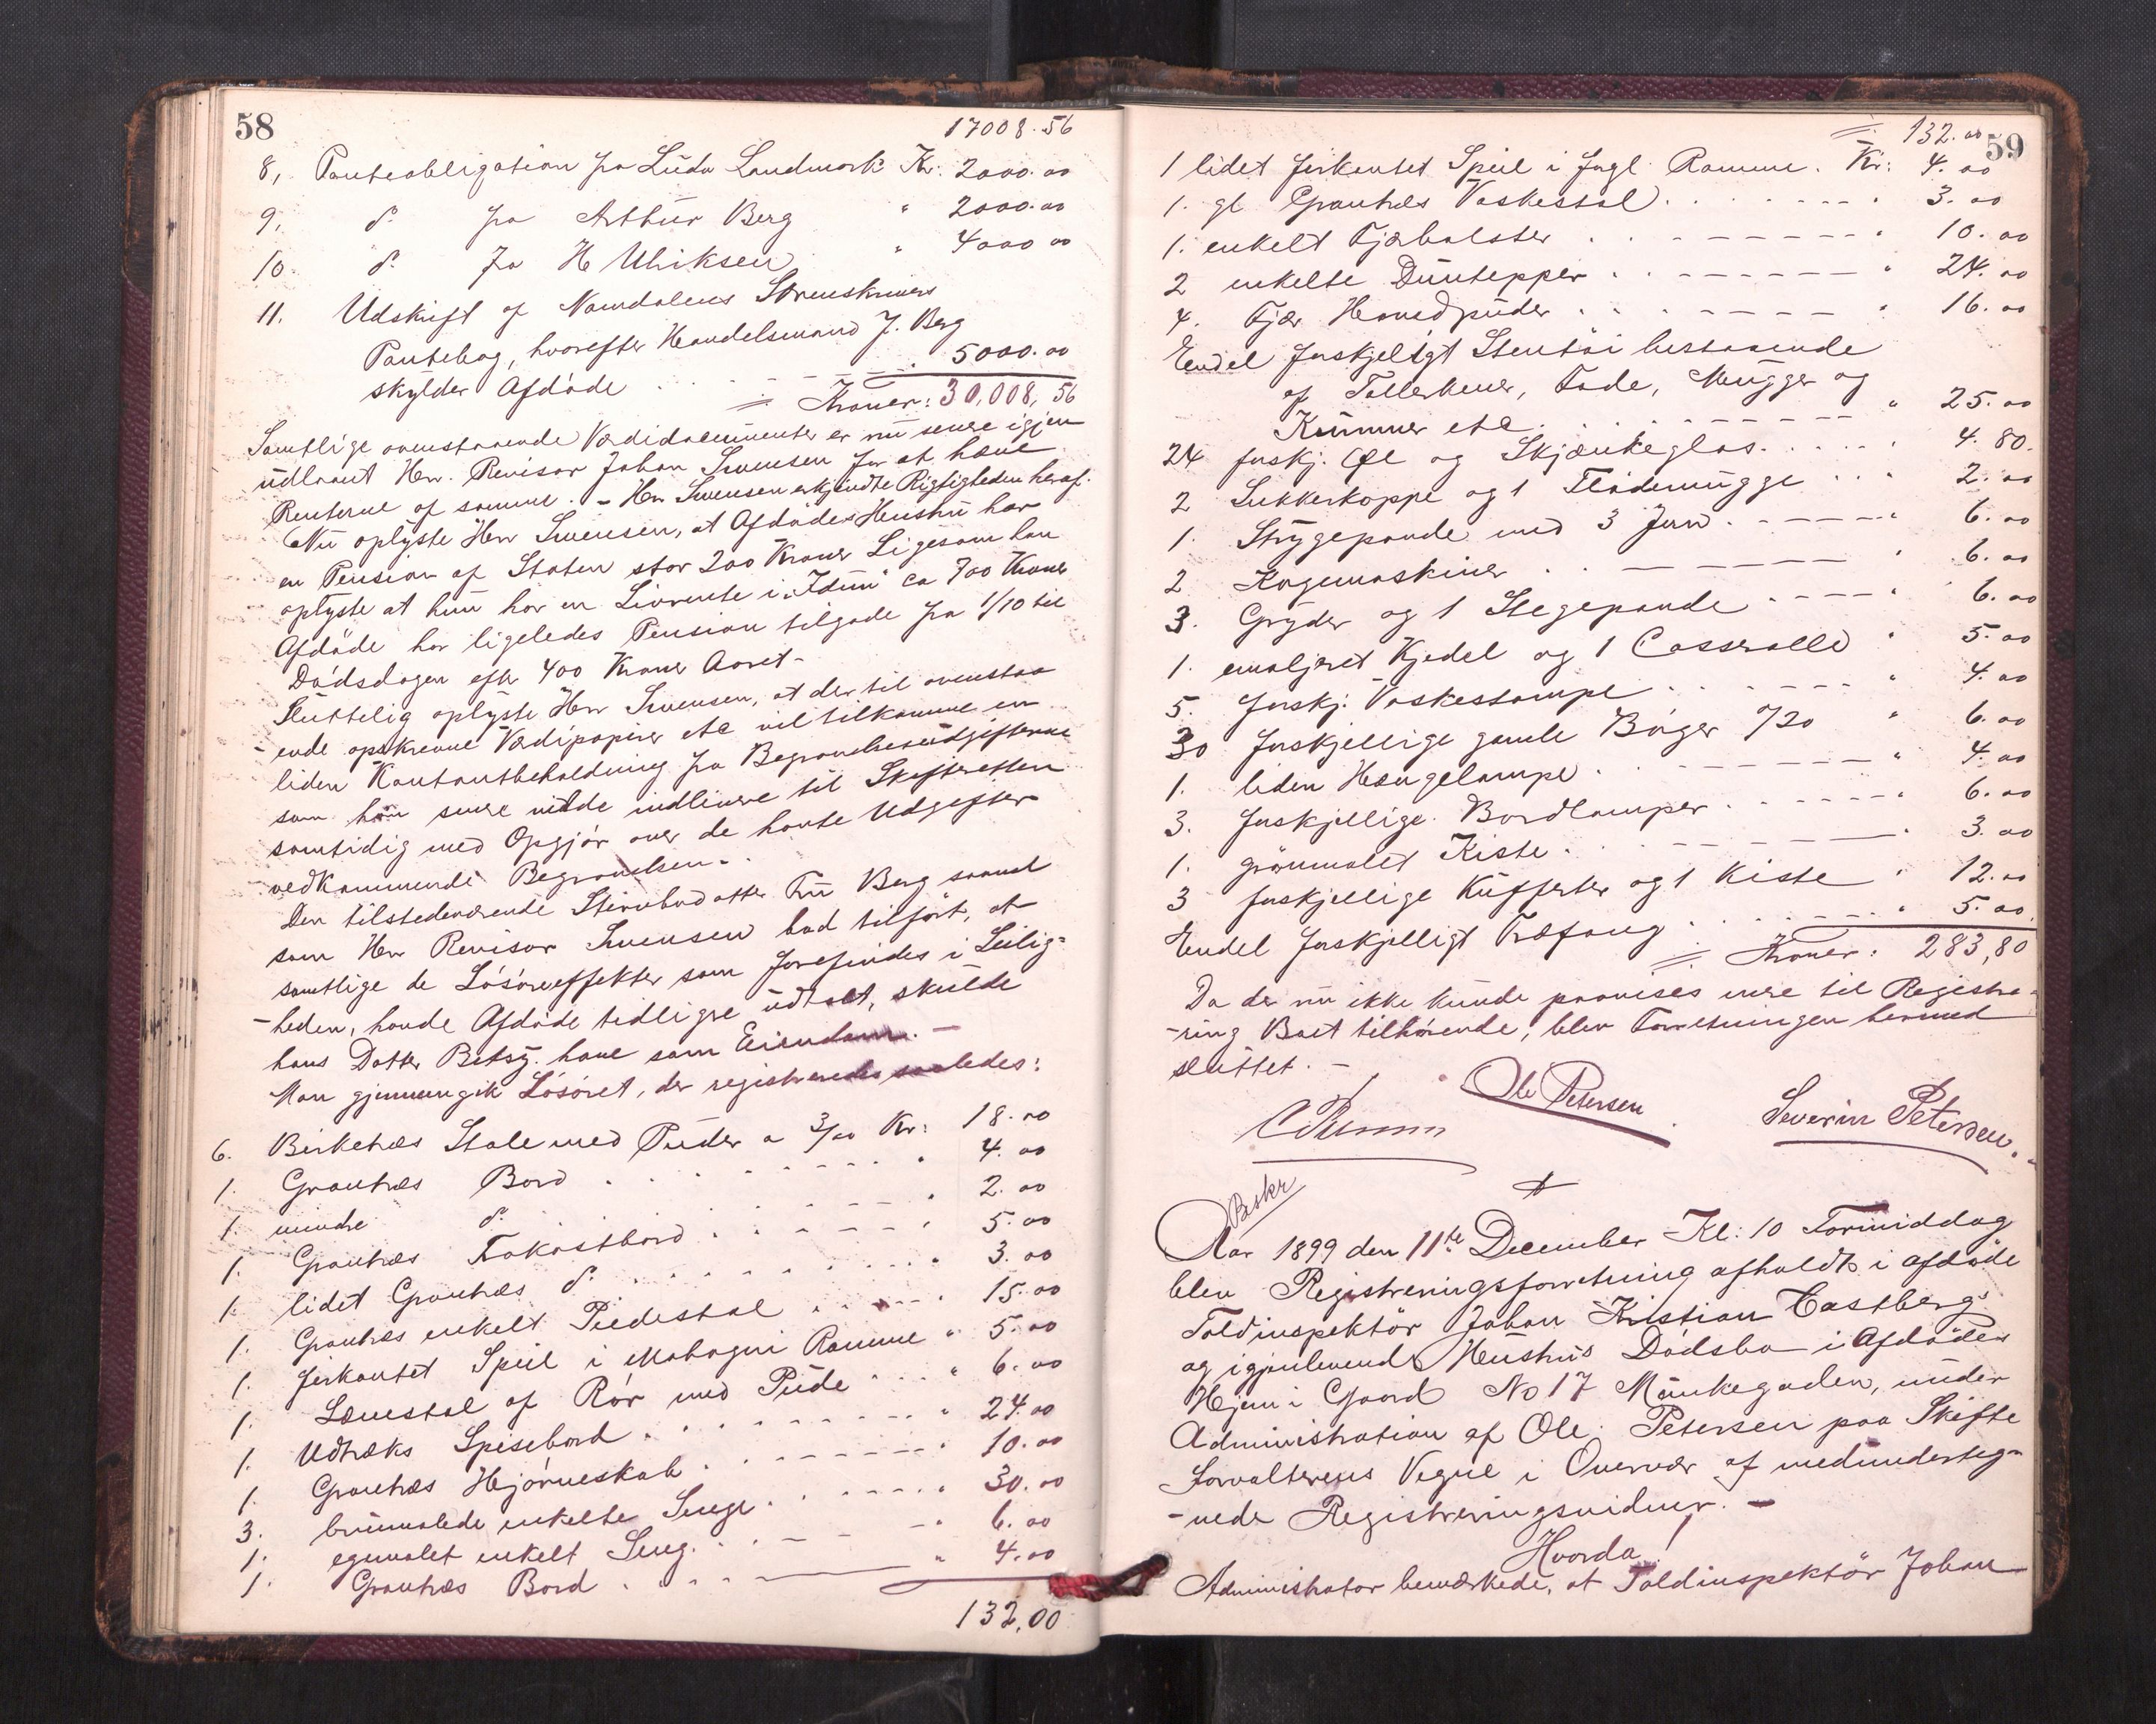 58
17008.56
8, Panteobligation fra Luda Landmark Kr: 2000.00
9, do fra Arthur Berg " 2000.00
10. do fra H Ulriksen " 4000 00
11. Udskrift af Namdalens Sorenskrivers
Pantebog, hvorefter Handelsmand J. Berg
skylder Afdøde 5000.00
Kroner: 30,008,56
Samtlige ovenstaaende Værdidocumenter er nu senere igjen
udlaant Hr. Revisor Johan Svensen for at hæve
Renterne af samme. - Herr Svensen erkjendte Rigtigheden heraf.
Nu oplyste Herr Svensen, at Afdødes Hustru har
en Pension af Staten stor 200 Kroner Ligesom han
oplyste at hun har en Livrente i "Idun" ca 700 Kroner
Afdøde har ligeledes Pension tilgode fra 1/10 til
Dødsdagen efter 400 Kroner Aaret-
Sluttelig oplyste Herr Svensen, at der til ovenstaa
ende opskrevne Værdipapirer etc vil tilkomme en
liden Kontantbeholdning fra Begravelsesudgifterne
som han senere vilde indlevere til Skifteretten
samtidig med Opgjør over de havte Udgifter
vedkommende Begravelsen-
Den tilstedeværende Stervbodatter Fru Berg saavel
som Herr Revisor Svensen bad tilført, at
samtlige de Løsøreeffekter som forefindes i Leilig=
-heden, havde Afdøde tidligere udtalt, skulde
hans Datter Betsy have som Eiendom. -
Man gjennemgik Løsøret, der registreredes saaledes:
6. Birketræs Stole med Puder a 3/00 Kr: 18.00
1. Grantræs Bord " 4.00
1. mindre do " 2.00
1. Grantræs Frokostbord " 5.00
1. lidet Grantræs do " 3.00
1. Grantræs enkelt Piedestal " 15.00
1. firkantet Speil i Mahogni Ramme " 5.00
1. Lænestol af Rør med Pude " 6.00
1. Udtræks Spisebord " 24.00
1. Grantræs Hjørneskab " 10.00
3. brunmalede enkelte Senge " 30.00
1. egemalet enkelt Seng " 6.00
1. Grantræs Bord " 4.00
132,00
59
132.00
1 lidet firkantet Speil i forgl Ramme. Kr: 4.00
1. gl Grantræs Vaskestol " 3.00
1. enkelt Fjærbolster " 10.00
2 enkelte Duntepper " 24.00
4. Fjær Hovedpuder " 16.00
Endel forskjeligt Stentøi bestaaende
af Tallerkener, Fade, Mugger og
Krummer etc " 25.00
24 forskj. Øl og Skjænkeglas " 4.80.
2 Sukkerkoppe og 1 Flødemugge " 2.00
1. Strygepande med 3 Jern " 6.00
2 Kogemaskiner " 6.00
3. Gryder og 1 Stegepande " 6.00
1. emaljeret Kjedel og 1 Casserolle " 5.00
5. forskj. Vaskestampe " 4.00
30 forskjellige gamle Bøger 0/20 " 6.00
1. liden Hængelampe " 4.00
3. forskjellige Bordlamper " 6.00
1. grønmalet Kiste " 3.00
3 forskjellige Kufferter og 1 Kiste " 12.00
Endel forskjelligt Træfang " 5.00.
Kroner: 283,80
Da der nu ikke kunde paavises mere til Registre-
-ring Boet tilhørende, blev Forretningen hermed
sluttet. -
Ole Petersen
Severin Petersen.
Beskr
Aar 1899 den 11te December Kl: 10 Formiddag
blev Registreringsforretning afholdt i afdøde
Toldinspektør Johan Kristian Castbergs
og igjenlevende Hustrus Dødsbo i Afdødes
Hjem i Gaard No 17 Munkegaden, under
Administration af Ole Petersen paa Skifte
forvalterens Vegne i Overvær af medunderteg=
-nede Registreringsvidner. -
Hvorda!
Administrator bemærkede, at Toldinspektør Johan